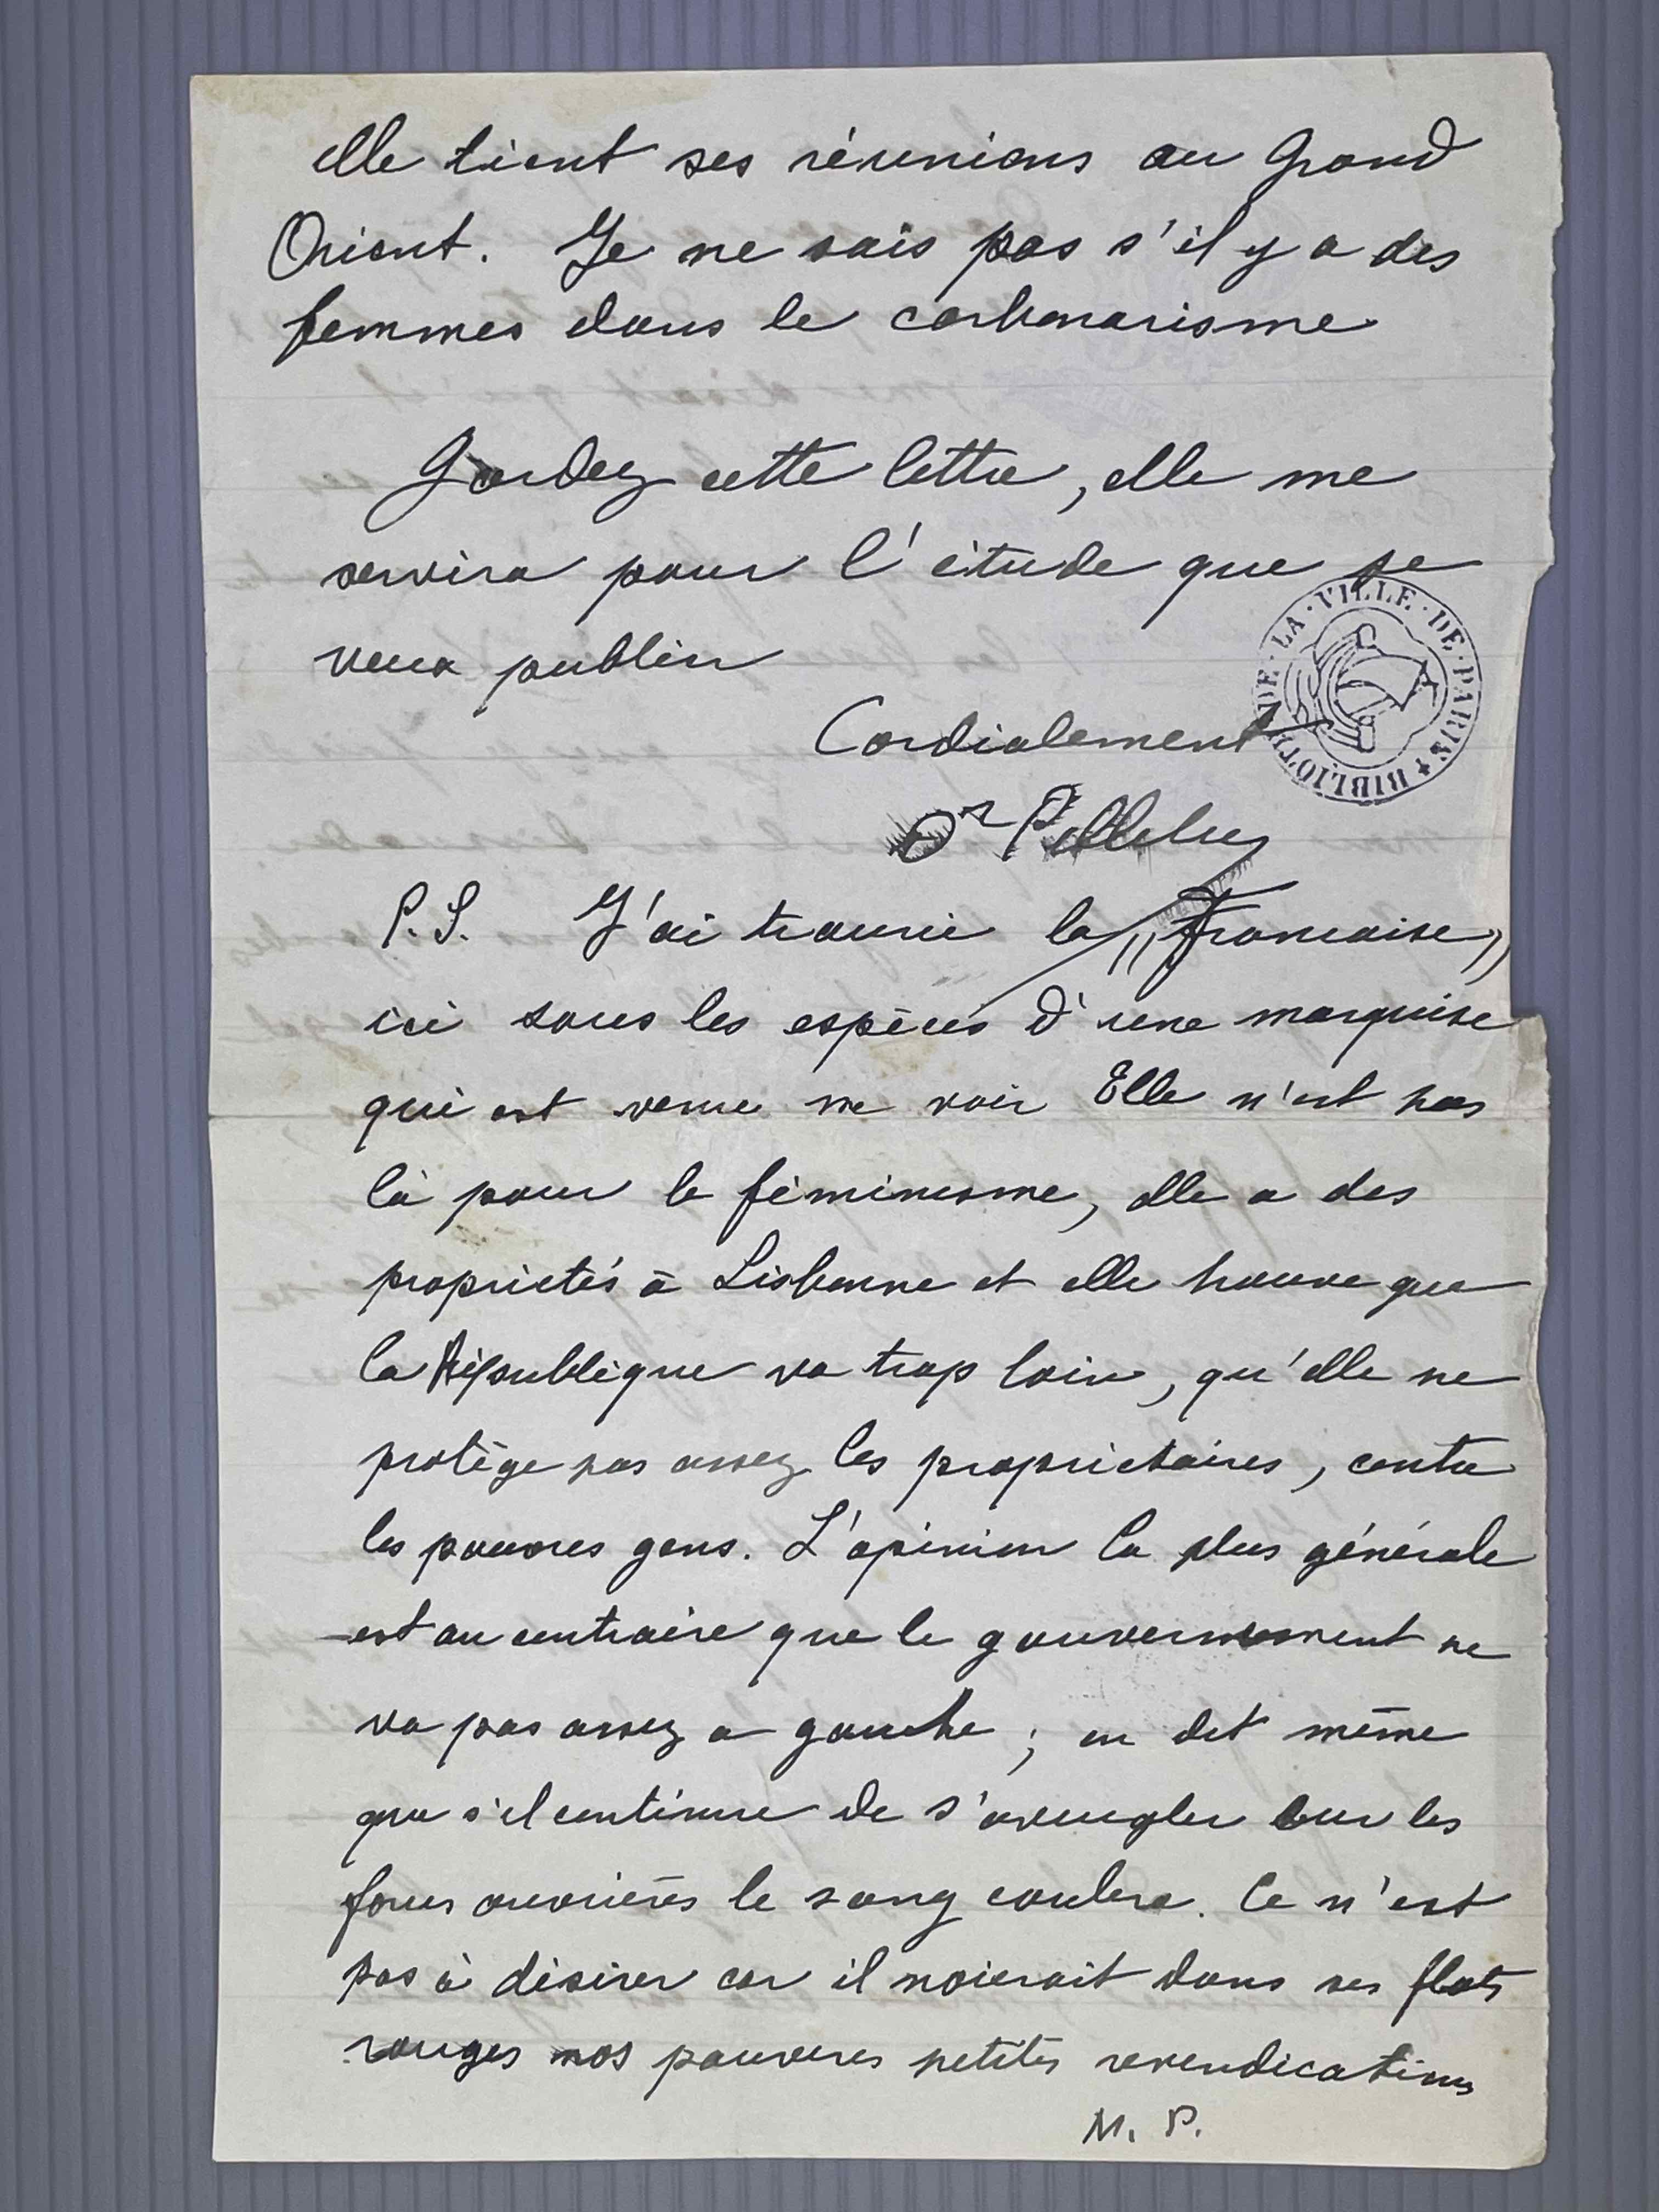 elle tient ses réunions au Grand
Orient. Je ne sais pas s'il y a des
femmes dans le carbonarisme
Gardez cette lettre, elle me
servira pour l'étude que je
veux publier
Cordialement
Dr Pelletier
BIBLIOTHÈQUE · DE · LA · VILLE · DE · PARIS
P.S. J'ai trouvé la "Française"
ici sous les espèces d'une marquise
qui est venue me voir Elle n'est pas
là pour le féminisme, elle a des
propriétés à Lisbonne et elle trouve que
la République va trop loin, qu'elle ne
protège pas assez les propriétaires, contre
les pauvres gens. L'opinion la plus générale
est au contraire que le gouvernement ne
va pas assez a gauche ; on dit même
que s'il continue de s'aveugler sur les
forces ouvrières le sang coulera. Ce n'est
pas à désirer car il noierait dans ses flots
rouges nos pauvres petites revendications
M. P.